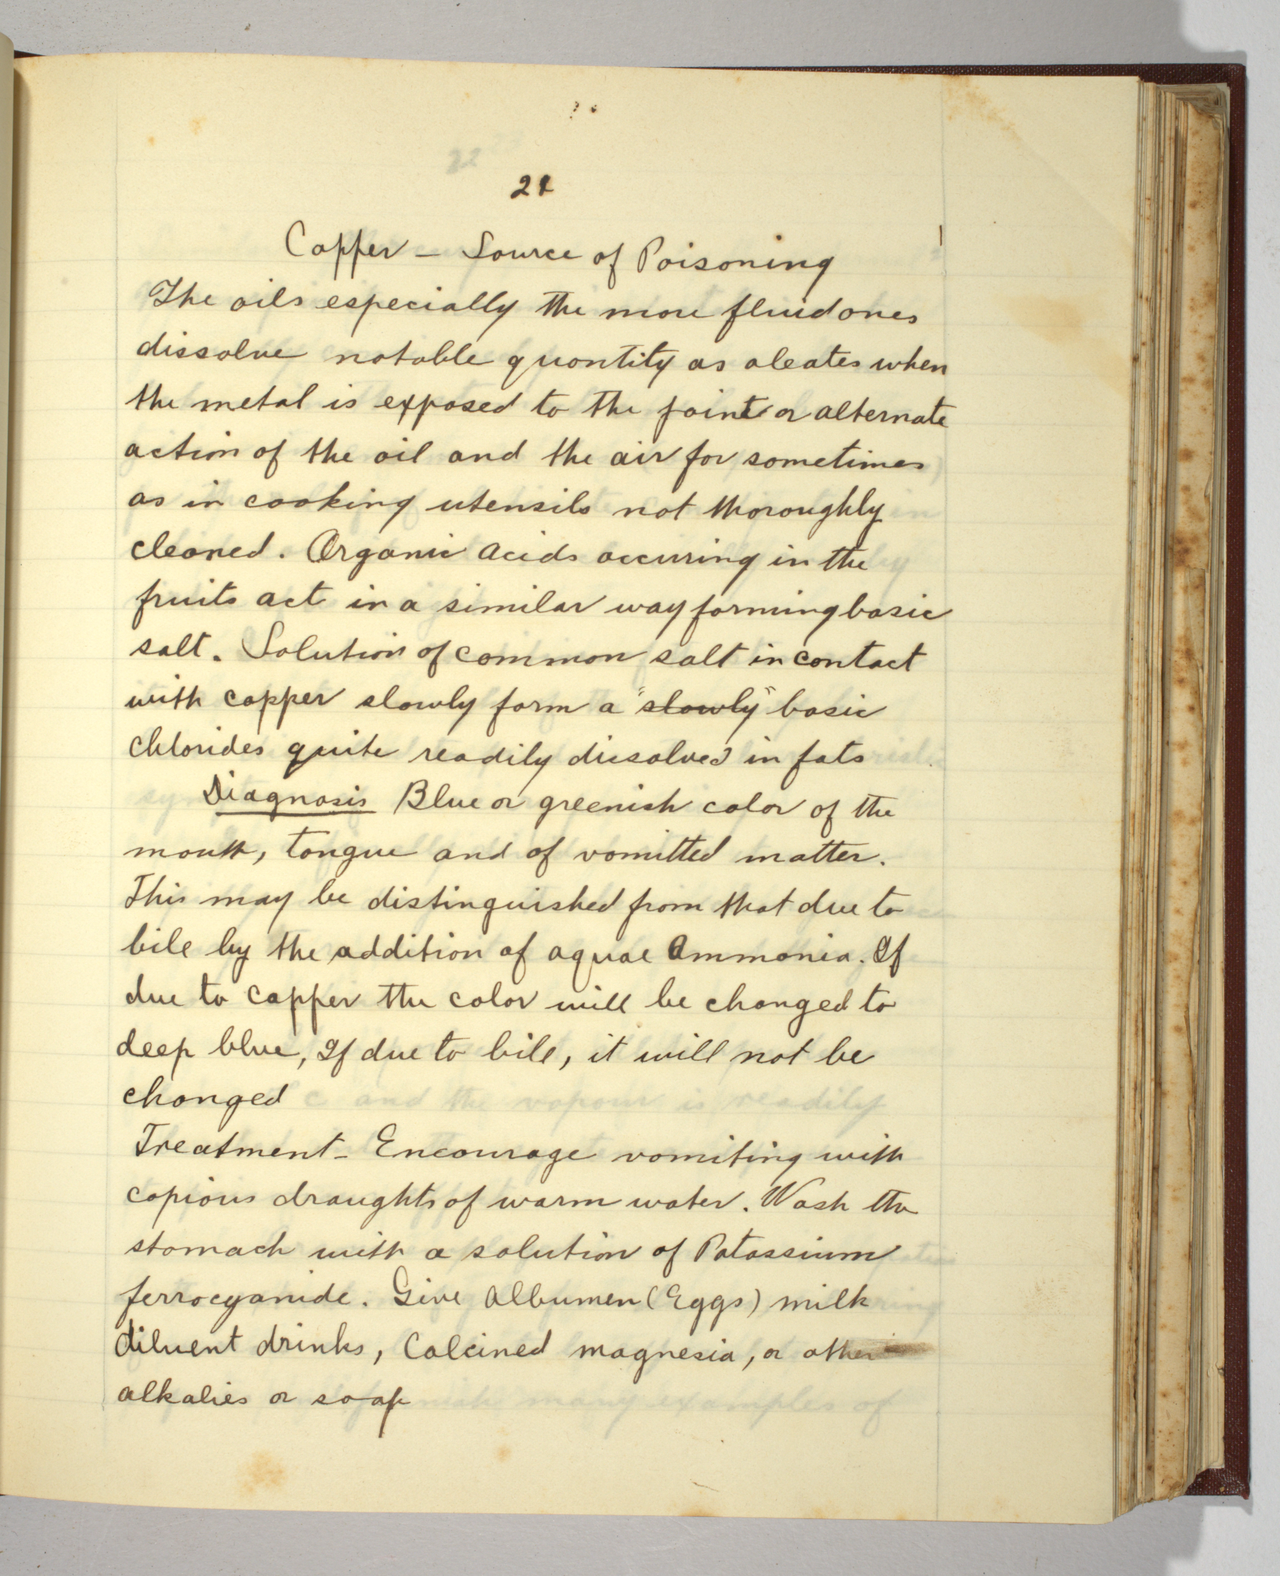 21
Copper – Source of Poisoning
The oils especially the more fluid ones
dissolve notable quantity as oleates when
the metal is exposed to the joint or alternate
action of the oil and the air for sometimes
as in cooking utensils not thoroughly
cleaned. Organic acids occuring in the
fruits act in a similar way forming basic
salt. Solution of common salt in contact
with copper slowly form a "slowly" basic
chlorides quite readily dissolved in fats
Diagnosis Blue or greenish color of the
mouth, tongue and of vomitted matter.
This may be distinguished from that due to
bile by the addition of aquae Ammonia. If
due to copper the color will be changed to
deep blue, If due to bile, it will not be
changed
Treatment – Encourage vomiting with
copious draughts of warm water. Wash the
stomach with a solution of Potassium
ferrocyanide. Give Albumen (Eggs) milk
diluent drinks, Calcined magnesia, or other
alkalies or soap